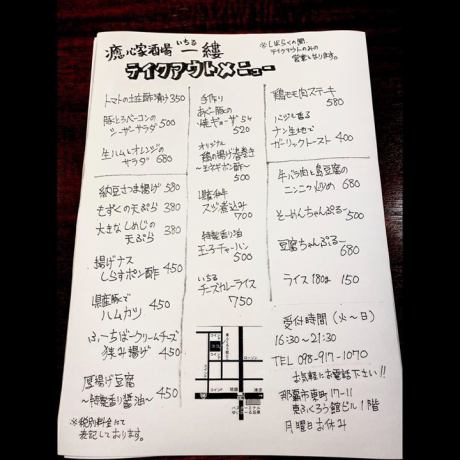 癒心家酒場 いちる 一縷
※しばらくの間、
テイクアウトのみの
営業となります。
テイクアウトメニュー
トマトの土佐酢漬け 350
豚とろベーコンの
シーザーサラダ 500
生ハムとオレンジの
サラダ 680
納豆さつま揚げ 580
もずくの天ぷら 380
大きなしめじの
天ぷら 380
揚げナス
しらすポン酢 450
県産豚で
ハムカツ 450
ふーちばークリームチーズ
挟み揚げ 450
厚揚げ豆腐
～特製香り醤油～ 450
※税別料金にて
表記しております。
手作り
あぐー豚の
焼ギョーザ 5ケ
520
オリジナル
鶏の揚げ春巻き
～玉ネギポン酢～
500
県産和牛
スジ煮込み
700
特製香り油
玉子チャーハン
500
いちる
チーズカレーライス
750
鶏モモ肉ステーキ
580
バジル香る
ナン生地で
ガーリックトースト 400
牛バラ肉と島豆腐の
ニンニク炒め 680
そーめんちゃんぷるー
500
豆腐ちゃんぷるー
680
ライス 180g 150
受付時間（火～日）
16:30～21:30
TEL 098-917-1070
お気軽にお電話下さい!!
那覇市東町17-11
東ふくろう館ビル1階
月曜日お休み